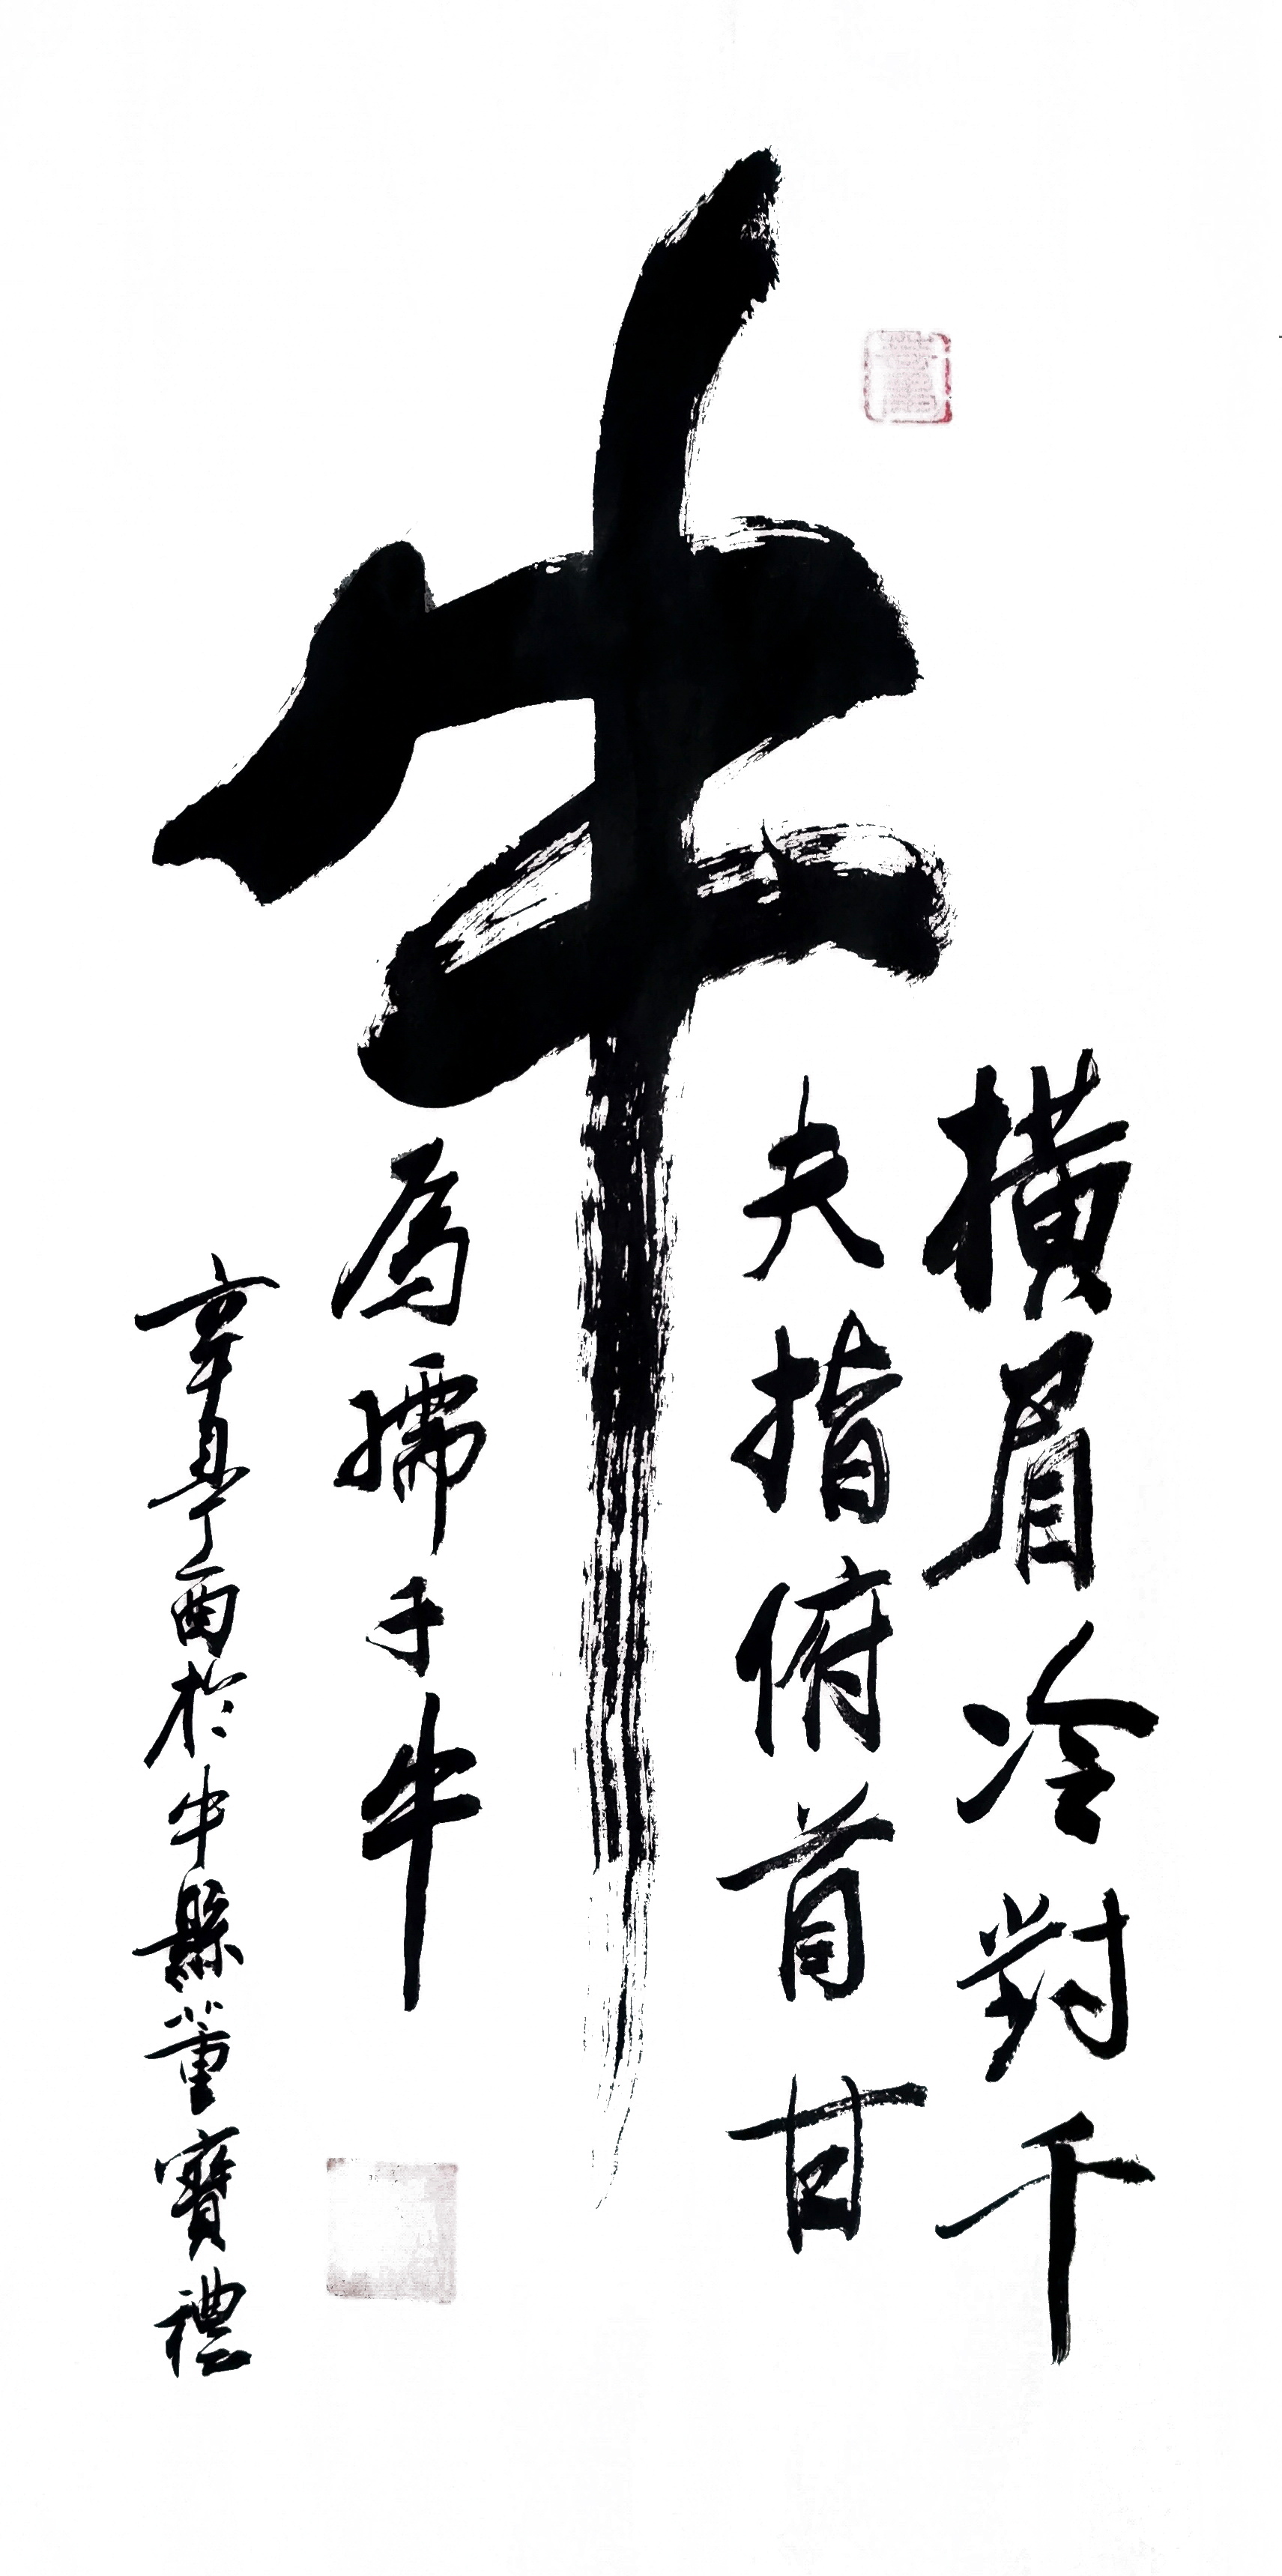 牛
橫眉冷對千
夫指俯首甘
為孺子牛
酉於中縣董寶禮